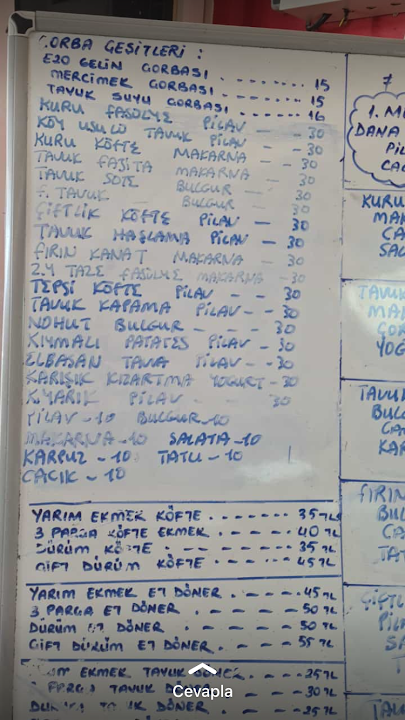 ÇORBA ÇEŞİTLERİ :
EZO GELİN ÇORBASI . - - - - - - - 15
MERCİMEK ÇORBASI . - - - - - - 15
TAVUK SUYU ÇORBASI . - - - - - 16
KURU FASÜLYE PİLAV - - - 30
KÖY USULÜ TAVUK PİLAV - - 30
KURU KÖFTE MAKARNA - - 30
TAVUK FAJİTA MAKARNA - - 30
TAVUK SOTE BULGUR - - 30
F. TAVUK BULGUR - 30
ÇİFTLİK KÖFTE PİLAV - 30
TAVUK HAŞLAMA PİLAV - 30
FIRIN KANAT MAKARNA - 30
Z.Y TAZE FASÜLYE MAKARNA - 30
TEPSİ KÖFTE PİLAV - - - 30
TAVUK KAPAMA PİLAV - - 30
NOHUT BULGUR - - - - 30
KIYMALI PATATES PİLAV - 30
ELBASAN TAVA PİLAV - - 30
KARIŞIK KIZARTMA YOGURT - 30
K.YARIK PİLAV - - - 30
PİLAV - 10 BULGUR - 10
MAKARNA - 10 SALATA - 10
KARPUZ - 10 TATLI - 10
CACIK - 10
YARIM EKMEK KÖFTE . - - - - - - 35 TL
3 PARÇA KÖFTE EKMEK . - - - - 40 TL
DÜRÜM KÖFTE . - - - - - - 35 TL
ÇİFT DÜRÜM KÖFTE . - - - - 45 TL
YARIM EKMEK ET DÖNER . - - - - 45 TL
3 PARÇA ET DÖNER . - - - - 50 TL
DÜRÜM ET DÖNER . - - - - 50 TL
ÇİFT DÜRÜM ET DÖNER . - - - 55 TL
EKMEK TAVUK DÖNER . - - - 25 TL
PARÇA TAVUK - - - 30 TL
DÖNER . - - - 25 TL
1. M
DANA
Pİ
CA
KURU
MA
CA
SA
TAVU
MA
ÇO
YOĞ
TAVU
BUL
CA
KAR
FIRIN
BU
CA
TA
ÇİFTL
PİL
SA
TAV
Cevapla